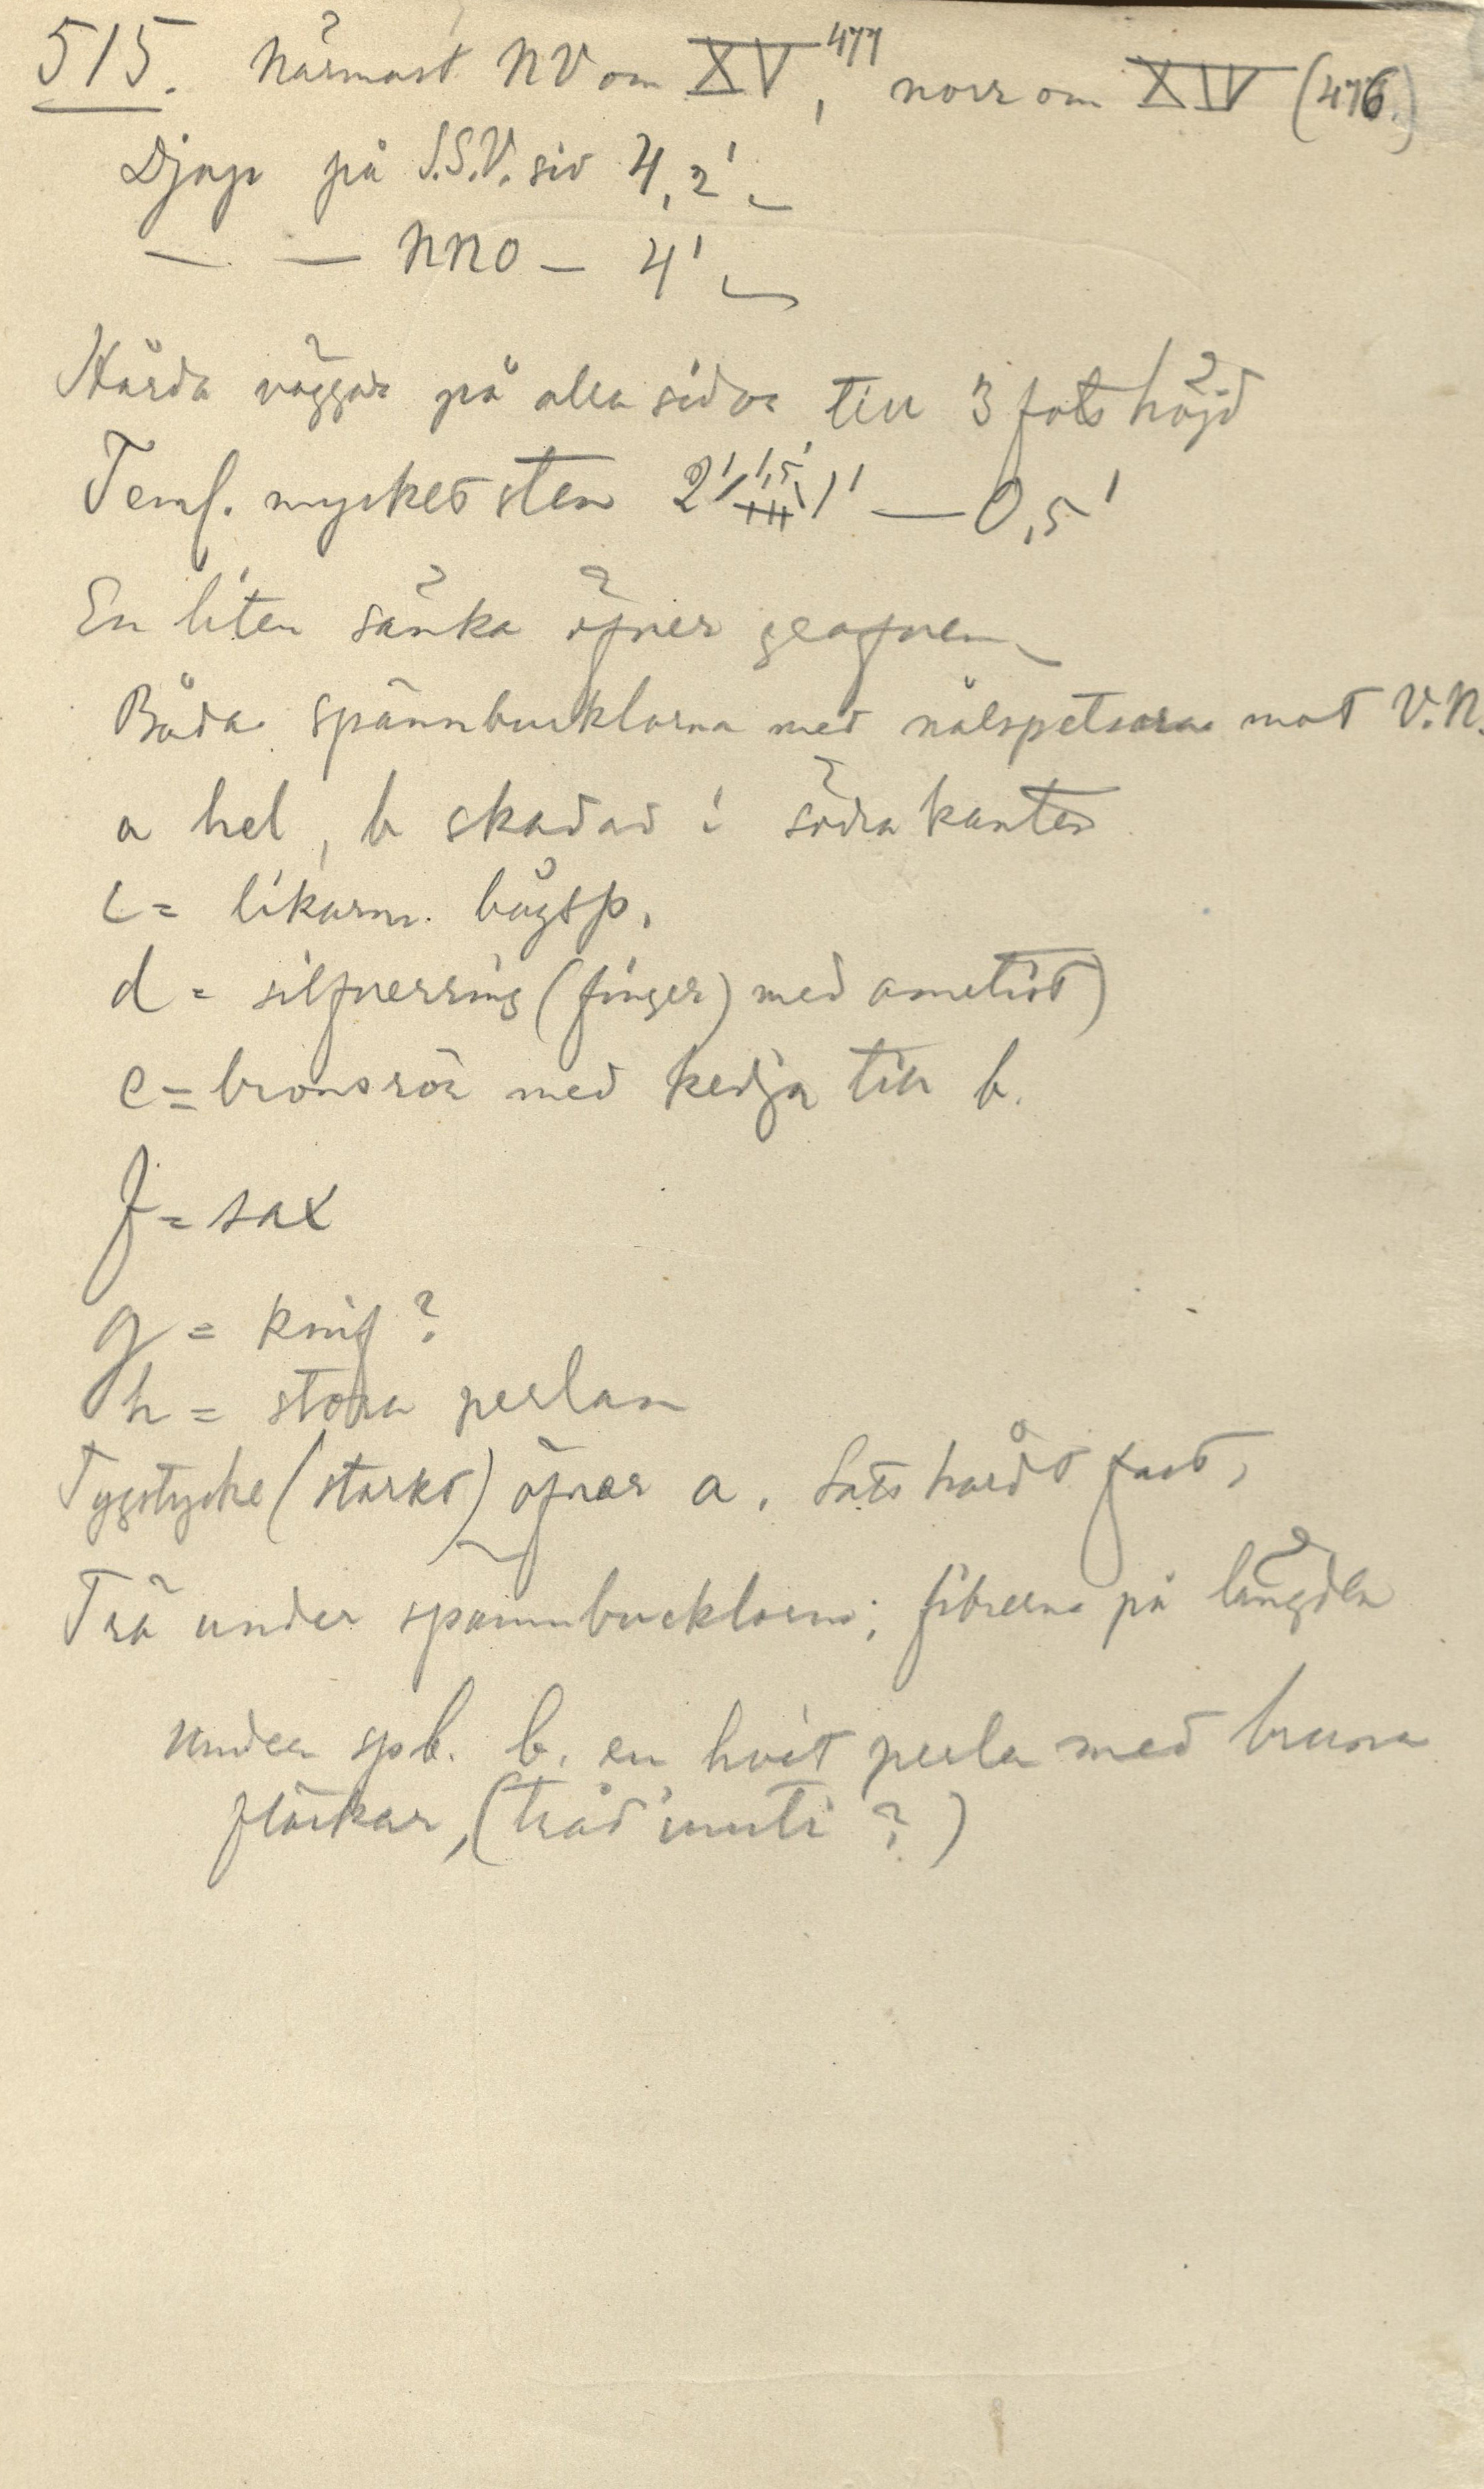 515. Närmast NV om XV, 477 norr om XIV (476.)
Djup på S.S.V. sid 4,2'
— — NNO — 4'
Hårda väggar på alla sidor till 3 fots höjd
Teml. mycket sten 2' 1,5' 1' — 0,5'
En liten sänka öfver grafven
Båda spännbucklorna med nålspetsarna mot V.N.
a hel, b skadad i södra kanten
c = likarm. bågsp.
d = silfverring (finger) med ametist)
e = bronsrör med kedja till b.
f = sax
g = knif?
h = stora perlan
Tygstycke (starkt) öfver a. Satt hårdt fast,
Trä under spännbucklorna; fibrerna på längden
Under spb. b. en hvit perla med bruna
fläckar, (tråd inuti?)